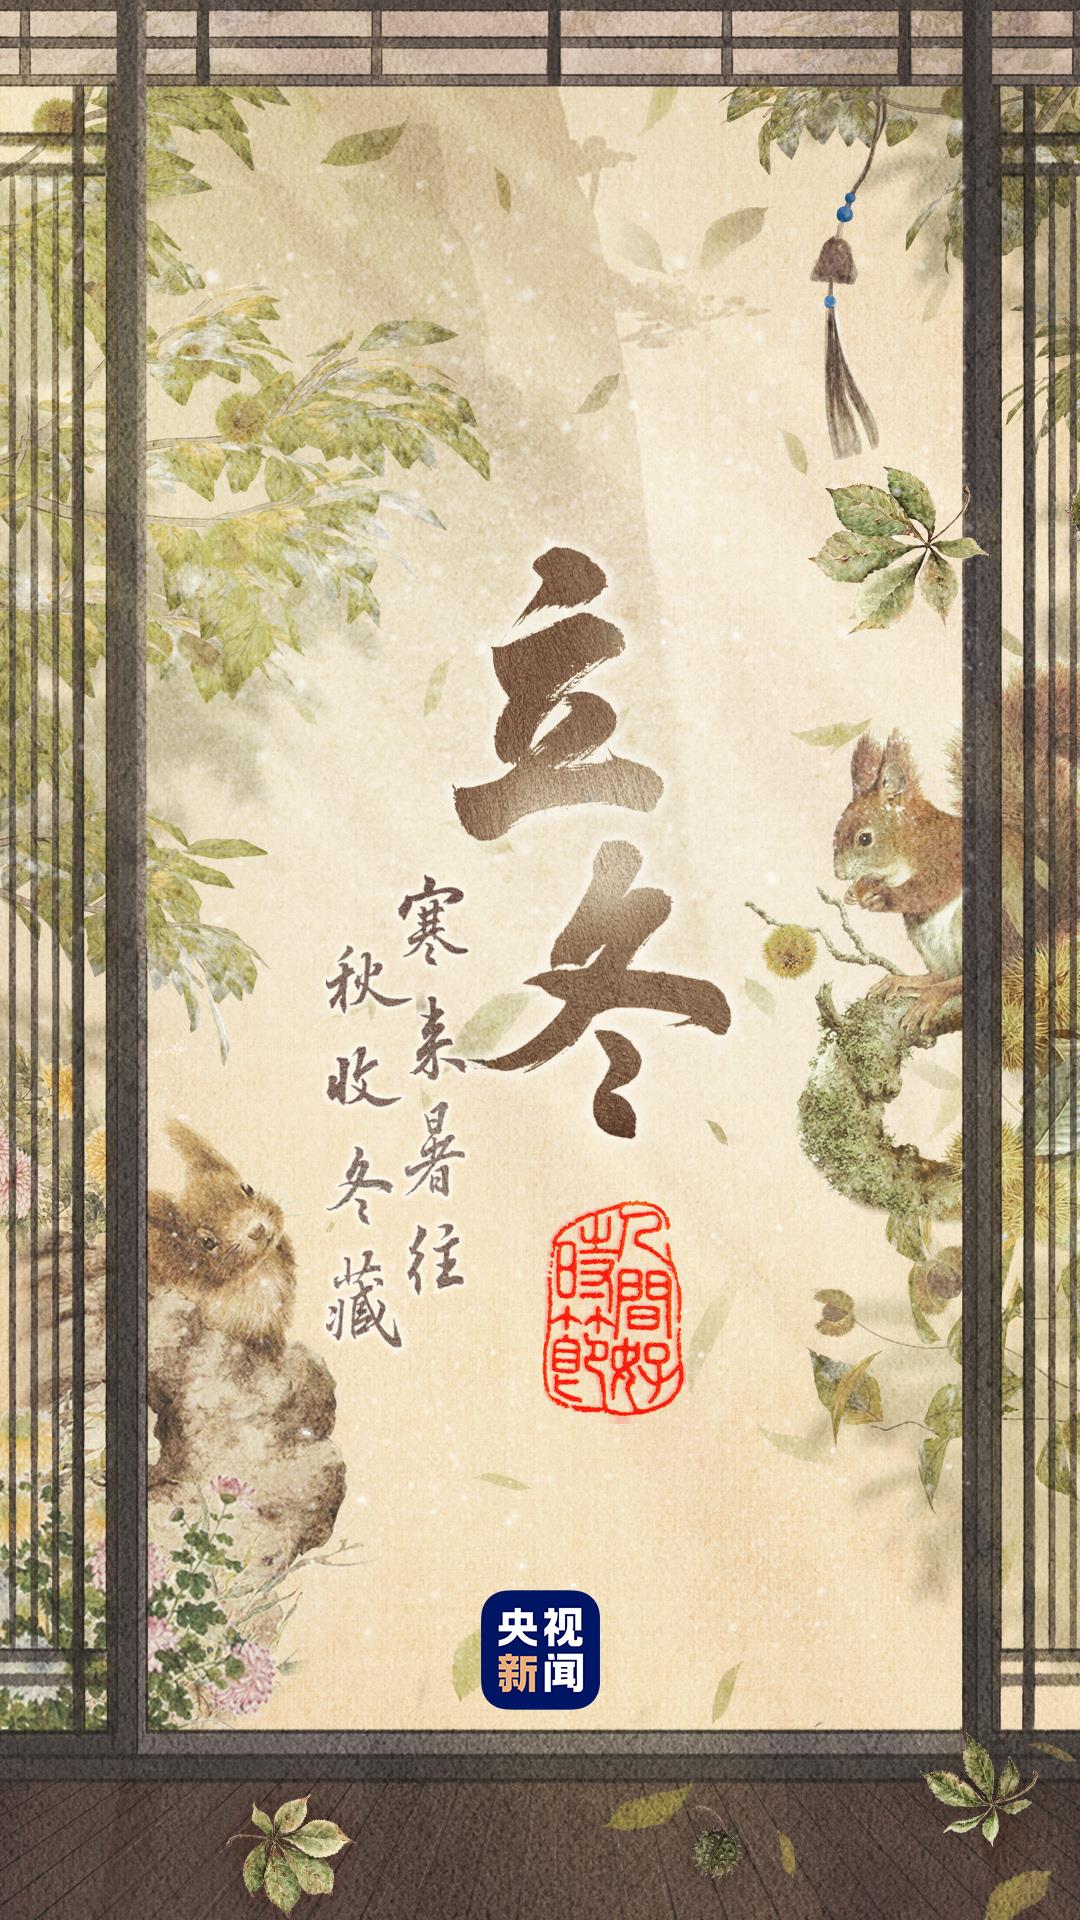 立冬
寒来暑往
秋收冬藏
人間好
時節
央视
新闻